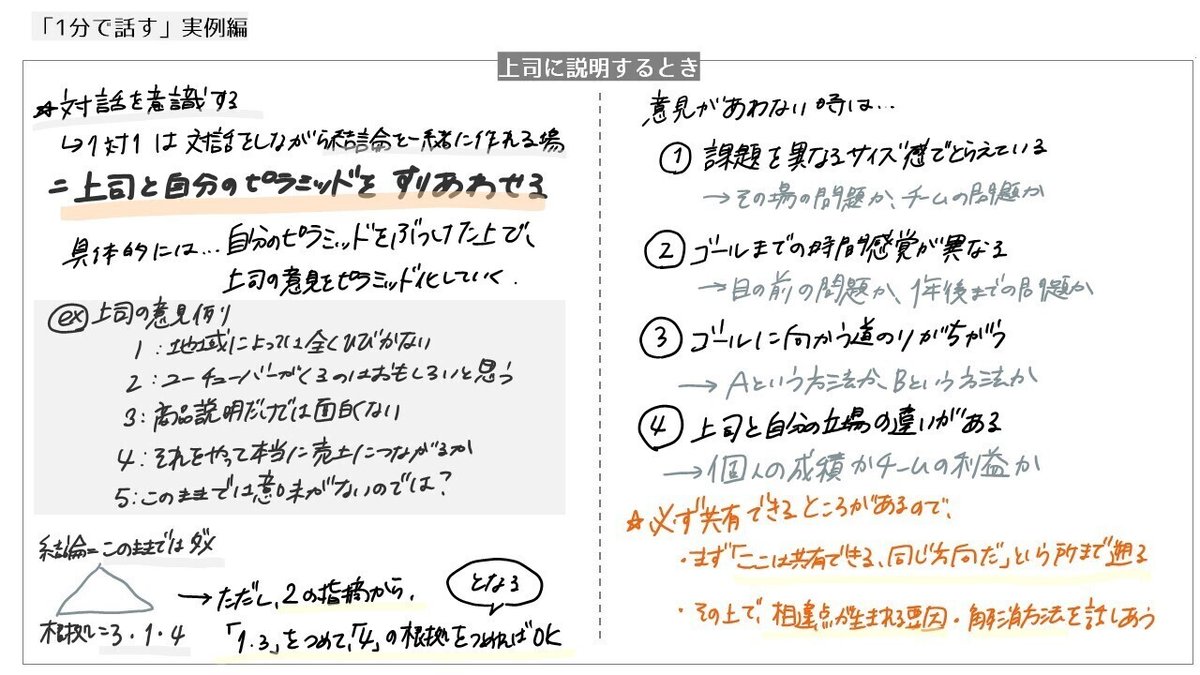 「1分で話す」実例編
上司に説明するとき
☆対話を意識する
↳1対1は対話をしながら結論を一緒に作れる場
=上司と自分のピラミッドをすりあわせる
具体的には…自分のピラミッドをぶつけた上で、
上司の意見をピラミッド化していく.
ex 上司の意見例
1:地域によっては全くひびかない
2:ユーチューバーがくるのはおもしろいと思う
3:商品説明だけでは面白くない
4:それをやって本当に売上につながるか
5:このままでは意味がないのでは?
結論=このままではダメ
根拠=3・1・4
→ただし、2の指摘から、
「1・3」をつめて、「4」の根拠をつめればOK
となる
意見があわない時は…
① 課題を異なるサイズ感でとらえている
→その場の問題か、チームの問題か
② ゴールまでの時間感覚が異なる
→目の前の問題か、1年後までの問題か
③ ゴールに向かう道のりがちがう
→Aという方法か、Bという方法か
④ 上司と自分の立場の違いがある
→個人の成績かチームの利益か
☆必ず共有できるところがあるので、
・まず「ここは共有できる、同じ方向だ」という所まで遡る
・その上で、相違点が生まれる要因・解消方法を話しあう